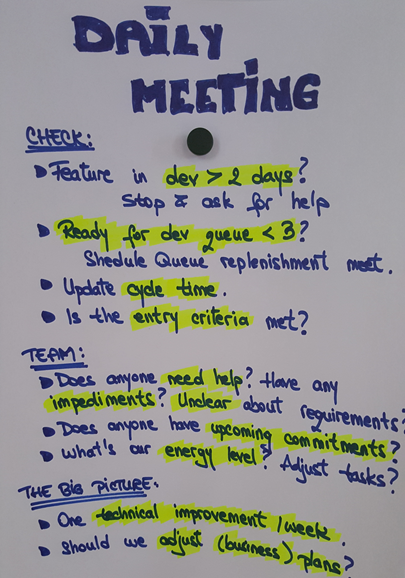 DAILY
MEETING
CHECK:
Feature in dev > 2 days?
Stop & ask for help
Ready for dev queue < 3?
Shedule Queue replenishment meet.
Update cycle time.
Is the entry criteria met?
TEAM:
Does anyone need help? Have any
impediments? Unclear about requirements?
Does anyone have upcoming commitments?
What's our energy level? Adjust tasks?
THE BIG PICTURE:
One technical improvement / week.
Should we adjust (business) plans?